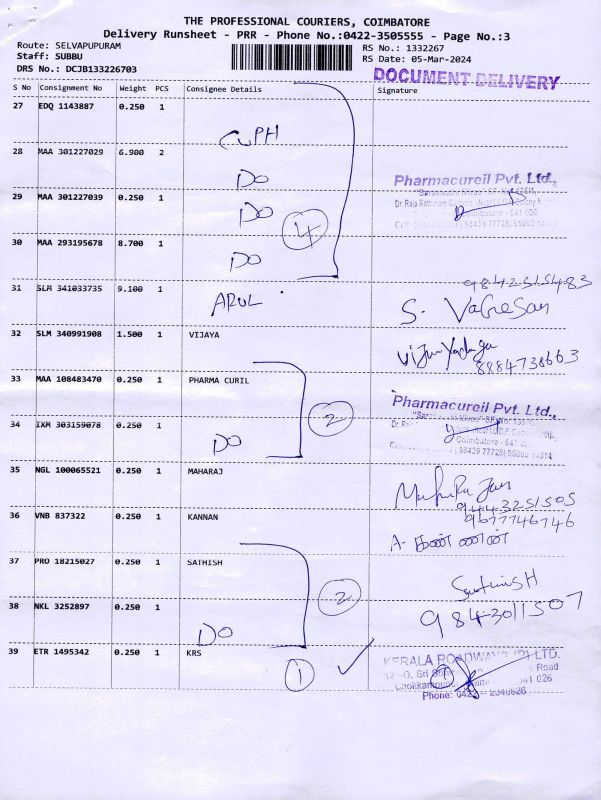 THE PROFESSIONAL COURIERS, COIMBATORE
Delivery Runsheet - PRR - Phone No.:0422-3505555 - Page No.:3
Route: SELVAPUPURAM
RS No.: 1332267
Staff: SUBBU
RS Date: 05-Mar-2024
DRS No.: DCJB133226703
DOCUMENT DELIVERY
S No Consignment No Weight PCS Consignee Details Signature
27 EDQ 1143887 0.250 1
CUPH
28 MAA 301227029 6.900 2
DO
Pharmacureil Pvt. Ltd.,
29 MAA 301227039 0.250 1
DO
4
30 MAA 293195678 8.700 1
DO
31 SLM 341033735 9.100 1
ARUL
32 SLM 340991908 1.500 1 VIJAYA
8884738663
33 MAA 108483470 0.250 1 PHARMA CURIL
Pharmacureil Pvt. Ltd.,
2
34 IXM 303159078 0.250 1
DO
Coimbatore
35 NGL 100065521 0.250 1 MAHARAJ
9443251505
36 VNB 837322 0.250 1 KANNAN
9677746746
37 PRO 18215027 0.250 1 SATHISH
2
38 NKL 3252897 0.250 1
DO
9843011507
39 ETR 1495342 0.250 1 KRS
1
KERALA ROADWAYS (P) LTD.
Road